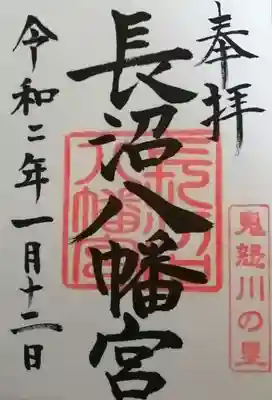 奉拝
長沼八幡宮
長沼八幡宮
鬼怒川の里
令和二年一月十二日